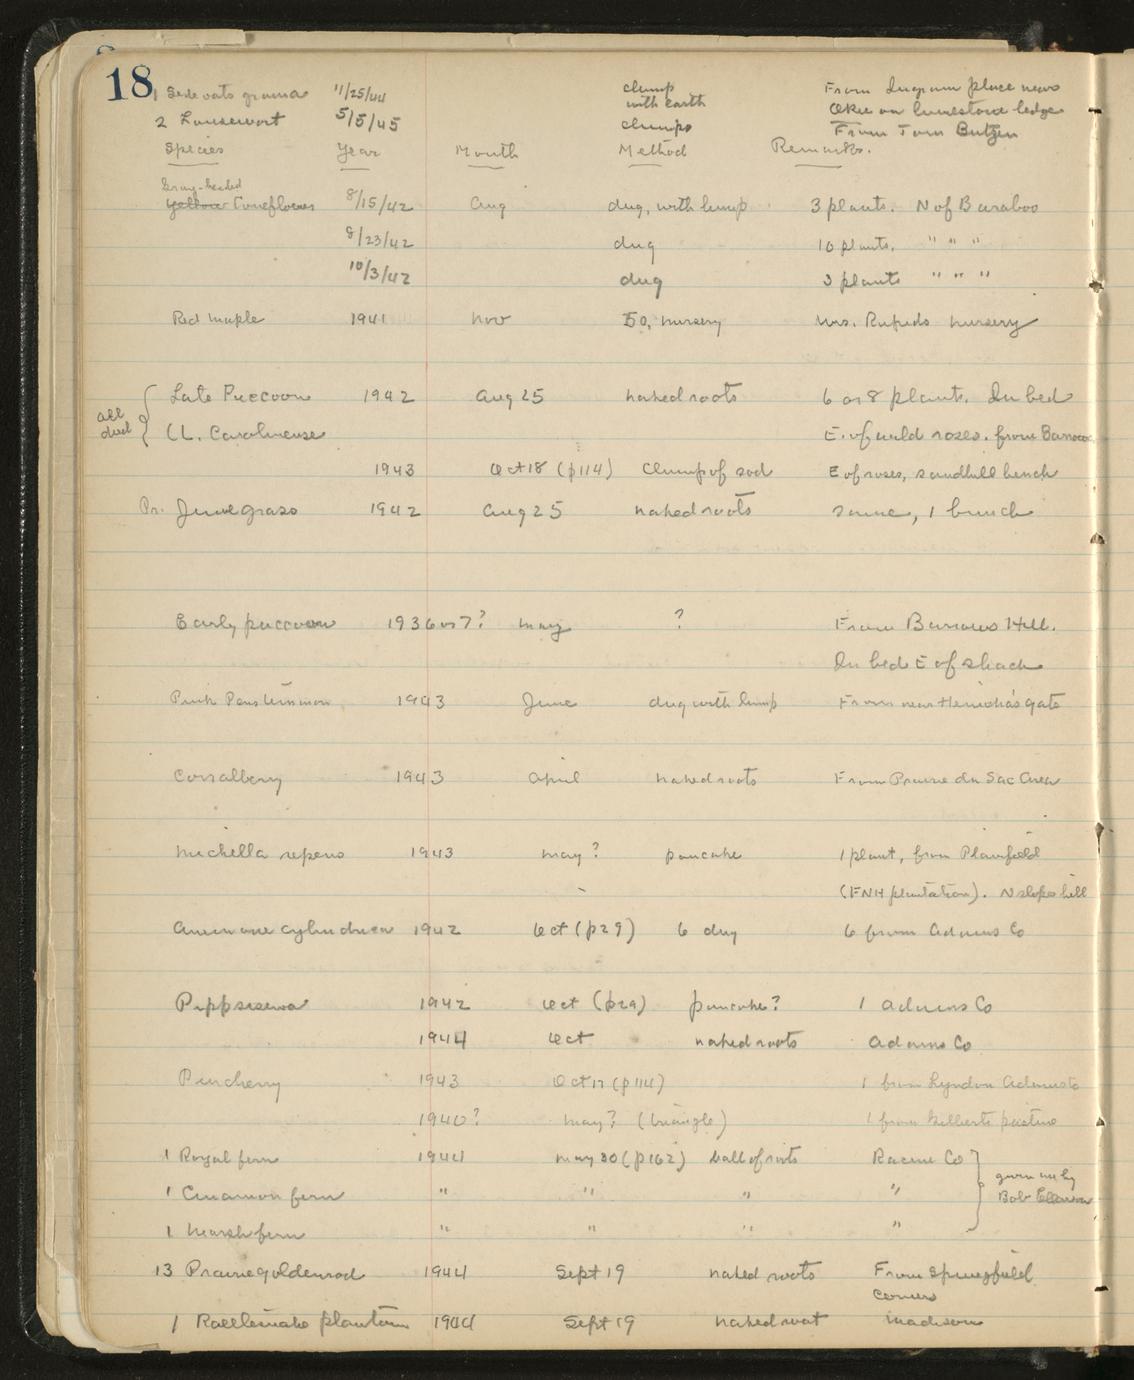 18
1 Side oats grama 11/25/44 clump with earth From Ingram place near Okee on limestone ledge
2 Lousewort 5/5/45 clumps From Tom Butzen
Species Year Month Method Remarks.
Gray-headed
yellow Coneflower 8/15/42 Aug dug, with lump 3 plants. N of Baraboo
8/23/42 dug 10 plants. " " "
10/3/42 dug 3 plants " " "
Red maple 1941 Nov 50, nursery Wis. Rapids nursery
all dead
Late Puccoon 1942 Aug 25 naked roots 6 or 8 plants. In bed
(L. Carolinense E. of wild roses. from
1943 Oct 18 (p114) Clump of sod E of roses, sandhill bench
Pr. Junegrass 1942 Aug 25 naked roots same, 1 bunch
Early puccoon 1936 or 7? May ? From Barrows Hill.
In bed E of shack
Pink Penstemon 1943 June dug with lump From near gate
Corralberry 1943 April naked roots From Prairie du Sac Area
Michella repens 1943 May? pancake 1 plant, from Plainfield
(FNH plantation). N slope hill
Anemone cylindrica 1942 Oct (p29) 6 dug 6 from Adams Co
Pippsissewa 1942 Oct (p29) pancake? 1 Adams Co
1944 Oct naked roots Adams Co
Pincherry 1943 Oct 17 (p114) 1 from Lyndon Adams Co
1940? May? (triangle) 1 from Gilberts pasture
1 Royal fern 1944 May 30 (p162) ball of roots Racine Co
given me by
1 Cinnamon fern " " " "
Bob Ellarson
1 Marsh fern " " " "
13 Prairie goldenrod 1944 Sept 19 naked roots From Springfield
Corners
1 Rattlesnake plantain 1944 Sept 19 naked root Madison